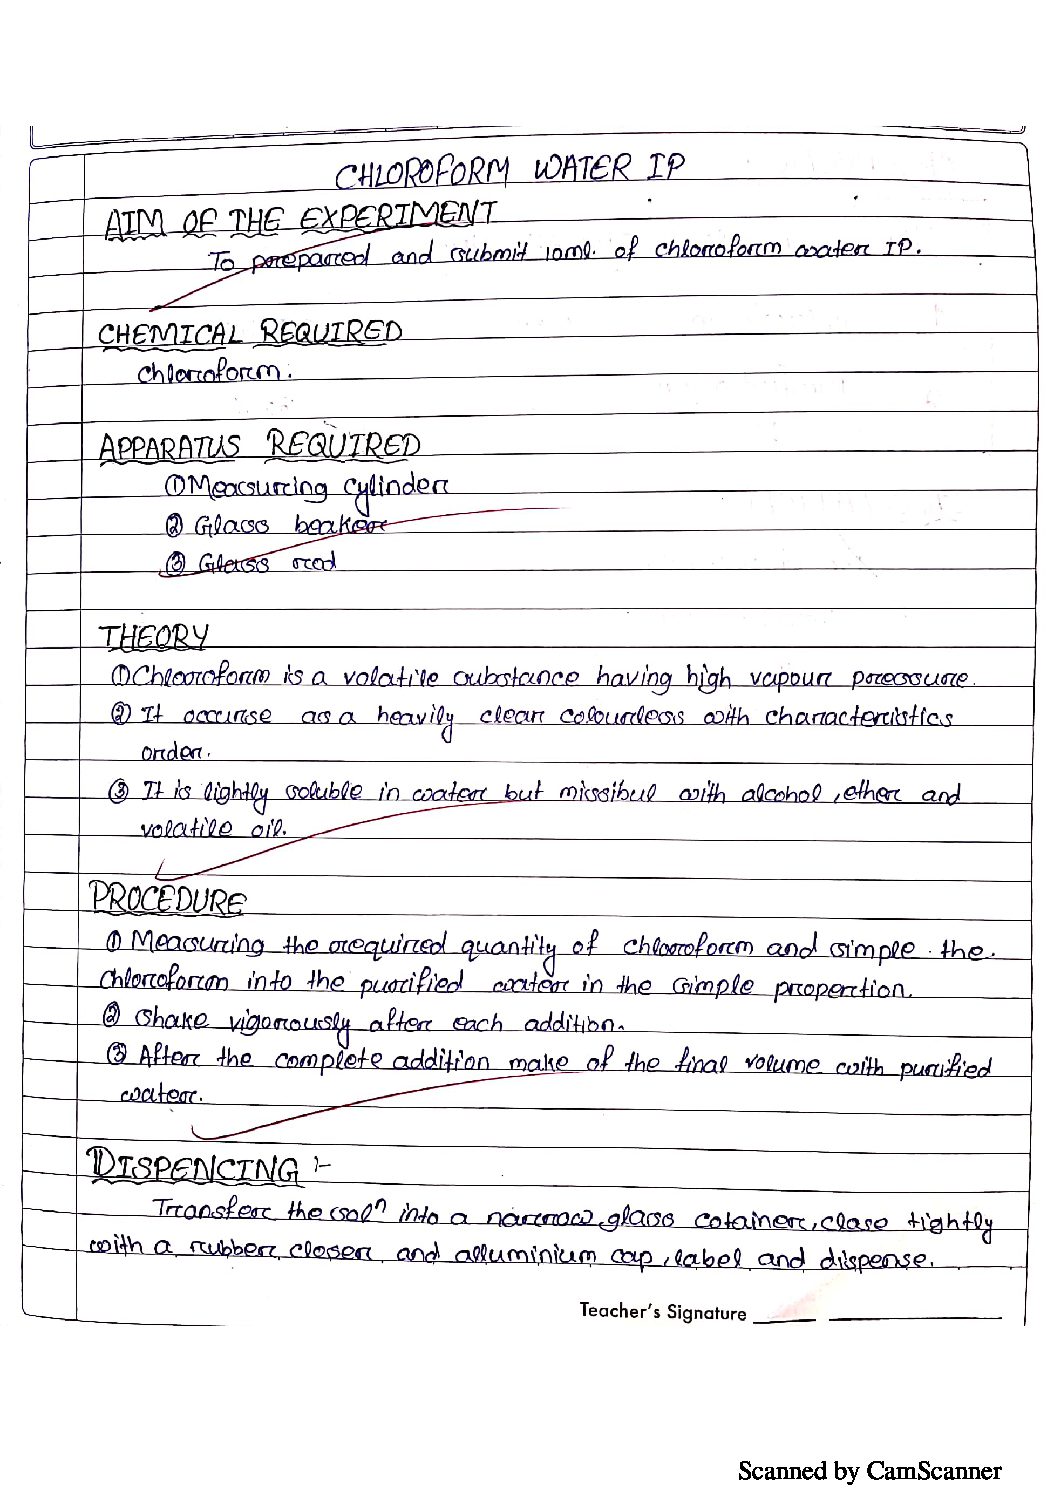 CHLOROFORM WATER IP
AIM OF THE EXPERIMENT
To prepared and submit 10ml. of chloroform water IP.
CHEMICAL REQUIRED
Chloroform.
APPARATUS REQUIRED
① Measuring cylinder
② Glass beaker
③ Glass rod
THEORY
① Chloroform is a volatile substance having high vapour pressure.
② It occurse as a heavily clear colourless with characteristics
order.
③ It is lightly soluble in water but missibul with alcohol, ether and
volatile oil.
PROCEDURE
① Measuring the required quantity of chloroform and simple the.
Chloroform into the purified water in the simple propertion.
② Shake vigorously after each addition.
③ After the complete addition make of the final volume with purified
water.
DISPENCING :-
Transfer the solⁿ into a narrow glass cotainer, close tightly
with a rubber closer and alluminium cap, label and dispense.
Teacher's Signature
Scanned by CamScanner